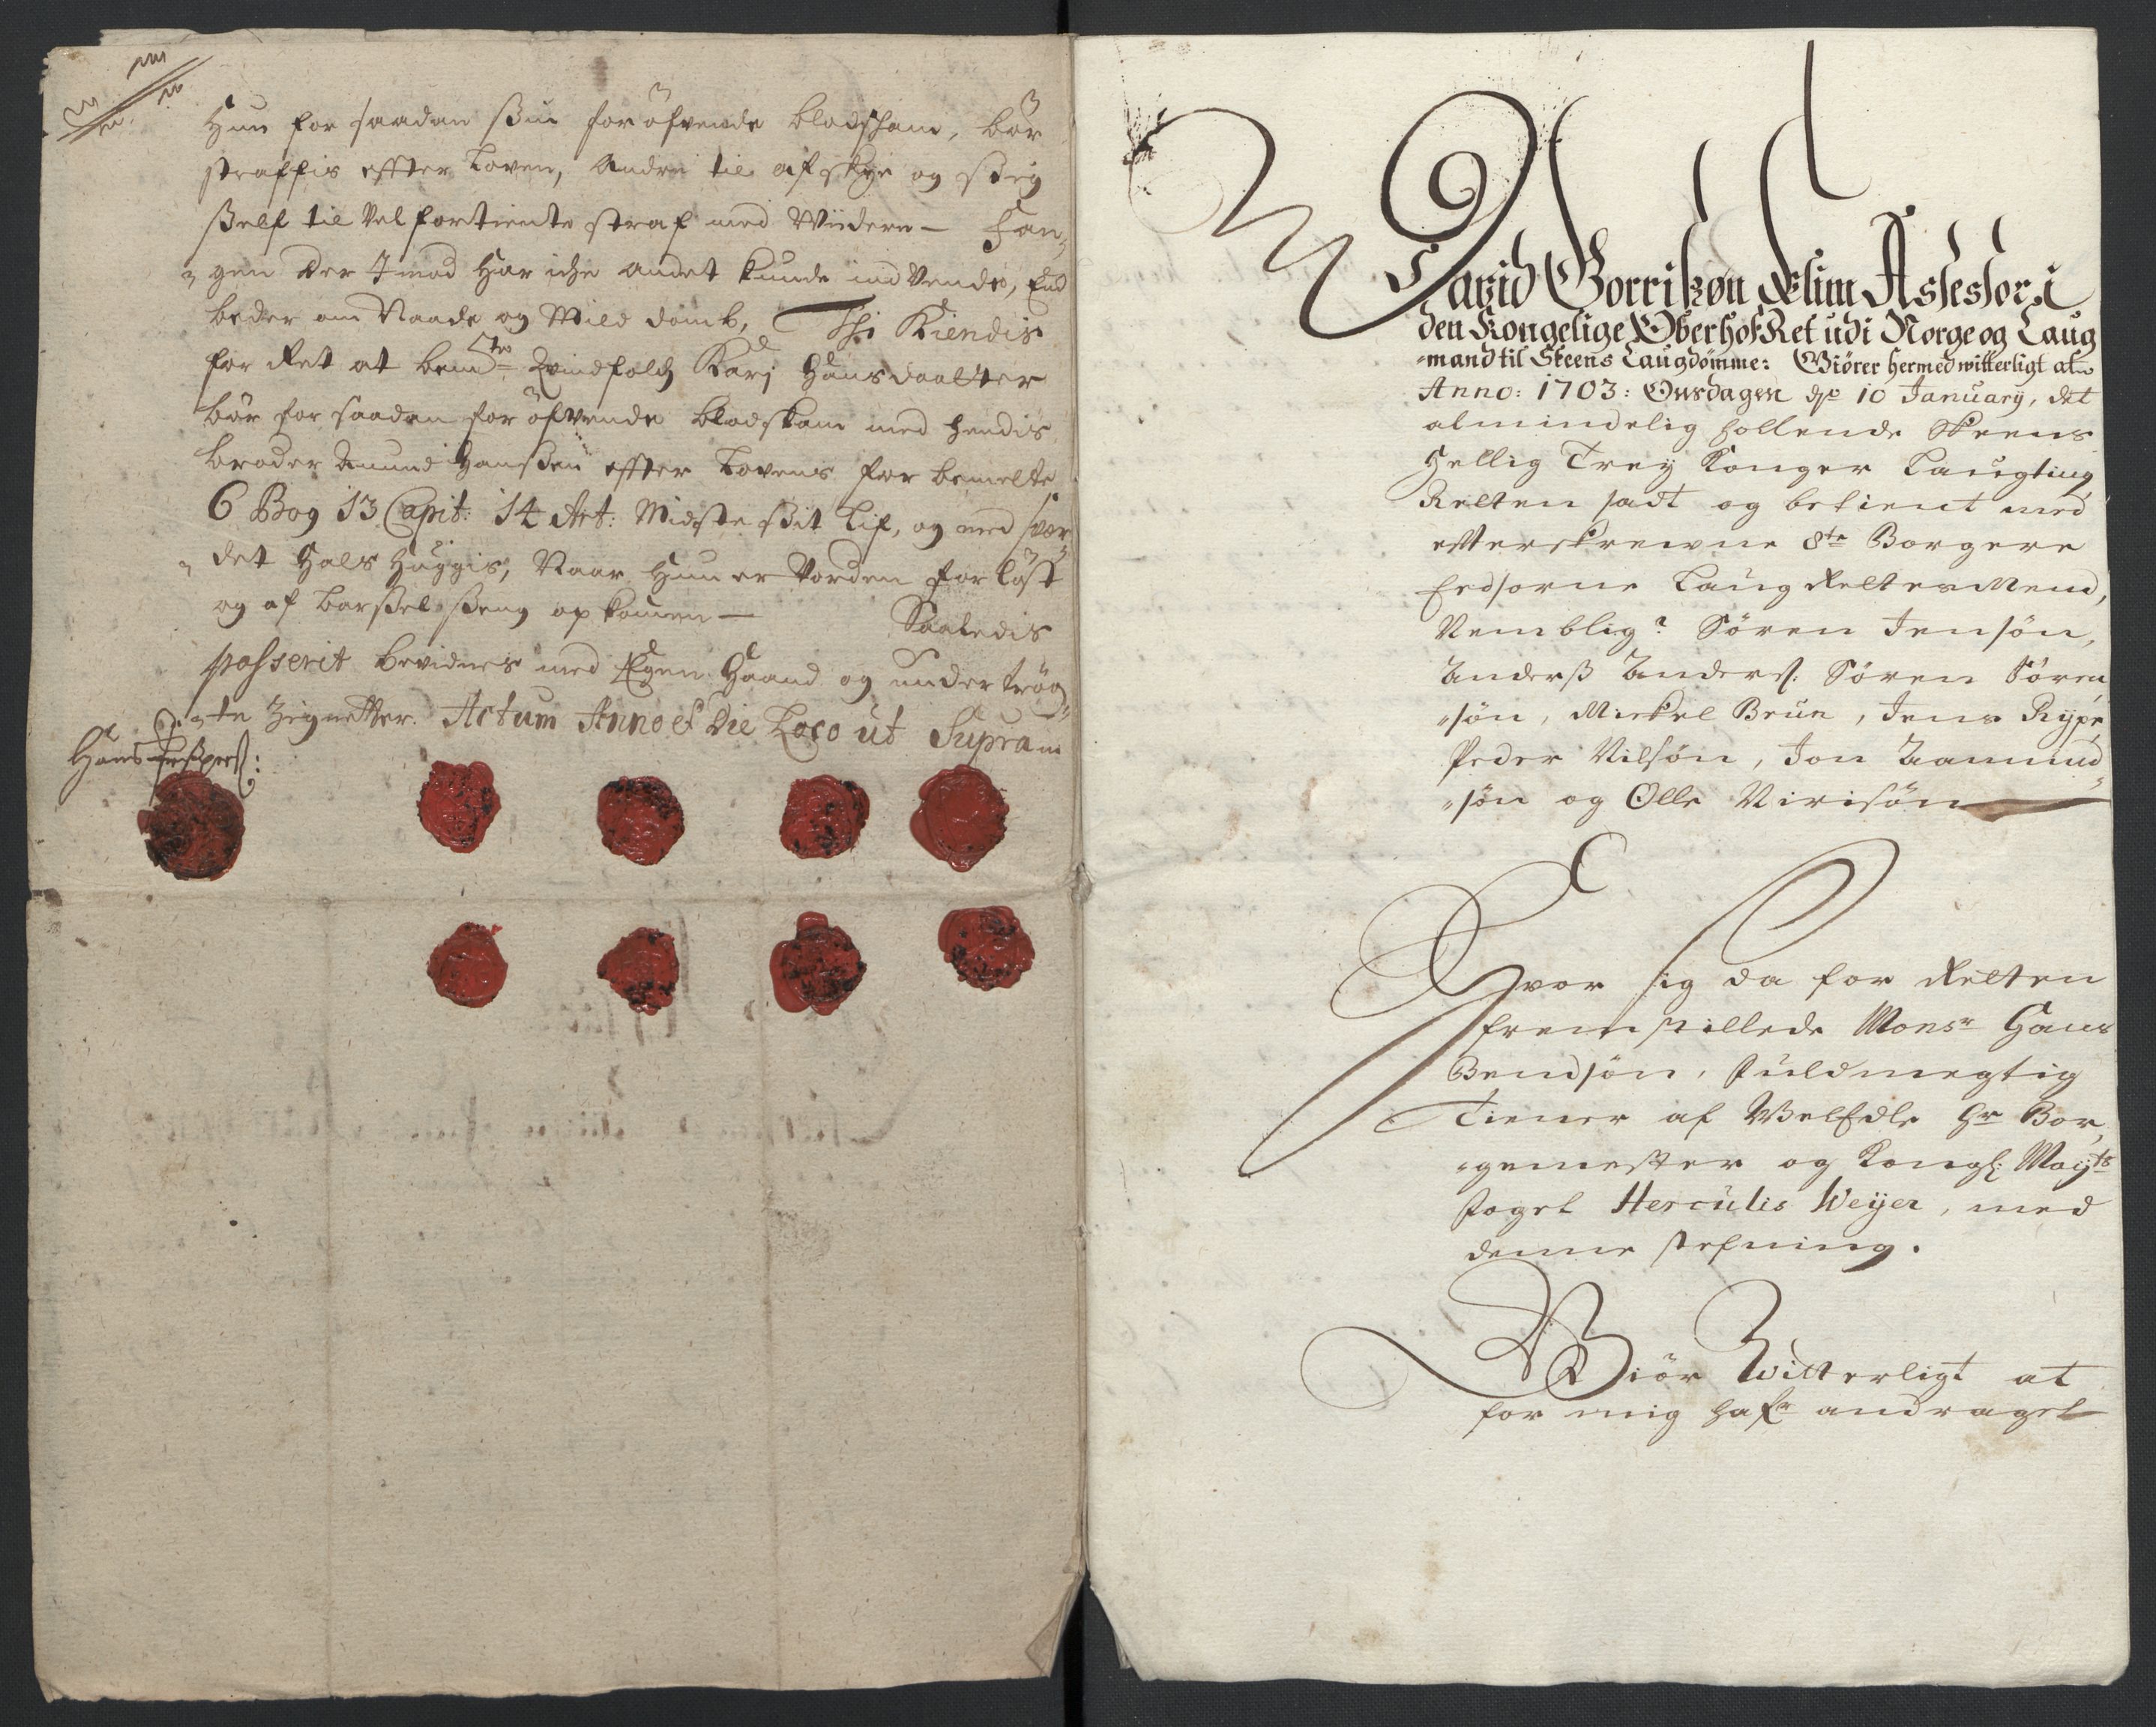 Hun for saadan sin foröfvende blodskam, bör
straffis effter Loven, Andre til afskye og sig
sself til velfortiente straf med Widere – Fan,,
,,gen der Imod har iche andet kunde ind Vende, End
beder om Naade og Mild domb, Thi Kiendis
for Ret at bemte Qvindfolch Karj Hansdaatter
bör for saadan foröfvende blodskam med hendis
broder Amund Hanssen effter Lovens for bemelte
6 Bog 13 Capit: 14 Art: Midste sit Lif, og med svær,,
,,det Hals Huggis, Naar Hun er Vorden forlöst
og af barssel seng op komen – Saaledis
passerit bevidnes med Egen Haand og undertrög,,
,,te Zignetter. Actum Anno et Die Loco ut Supra
Hans Jespers:
David Gorrißøn Klim Assessor i
den Kongelige Oberhof Ret udi Norge og Laug
=mand til Skeens Laugdømme: Giører hermed witterligt at
Anno: 1703: Onsdagen dn 10 January, det
almindelig hollende Skeens
Hellig Trey Konger Laugting
Retten sadt og betient med
effterskrewne 8te Borgere
Eedsorne Laug Rettes Mend,
Nemblig: Sören Jensön,
Anderß Anders: Sören Sören
=sön, Mickel Brun, Jens Rype
Peder Nilsön, Jon Aamund
=sön og Olle Nirisön
Hvor sig da for Retten
fremstillede Monsr Hans
Bendsön, fuldmegtig
Tiener af WelEdle Hr Bor,
=gemester og Kongl: Mayts
foget Herculis Weyer, med
denne stefning.
Giör Witterligt at
for mig hafr andraget